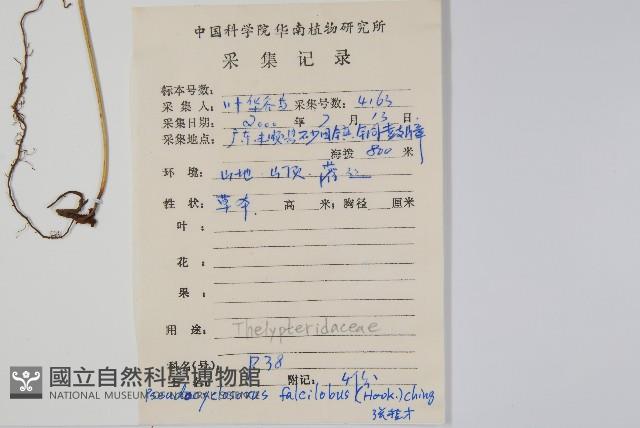 中国科学院华南植物研究所
采集记录
标本号数:
采集人: 叶华谷 采集号数: 4163
采集日期: 2000 年 7 月 13 日
采集地点: 广东
海拨 800 米
环境: 山地. 山顶.
性状: 草本. 高 米; 胸径 厘米
叶:
花:
果:
用途: Thelypteridaceae
科名(号) P38
附记:
Pseudocyclosorus falcilobus (Hook.) Ching
國立自然科學博物館
NATIONAL MUSEUM OF NATURAL